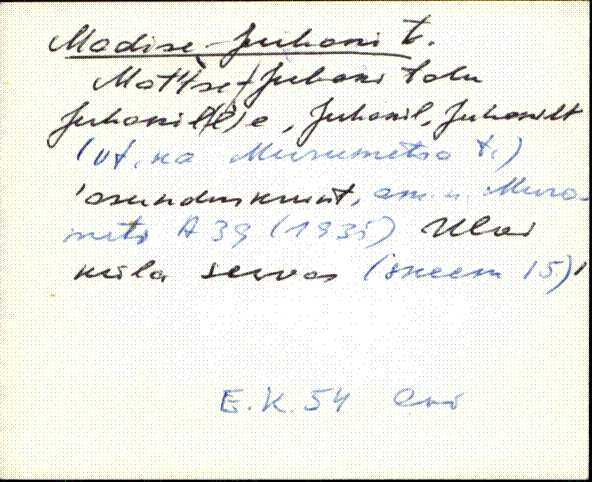 Madise-Juhani t.
Mattse-Juhani talu
Juhanil(l)e, Juhanil, Juhanilt
(vt. ka Murumetsa t.)
'asunduskrunt, am. n. Muru-
metsa A39 (1935) Ulvi
küla servas (skeem 15)'
E.K. 54